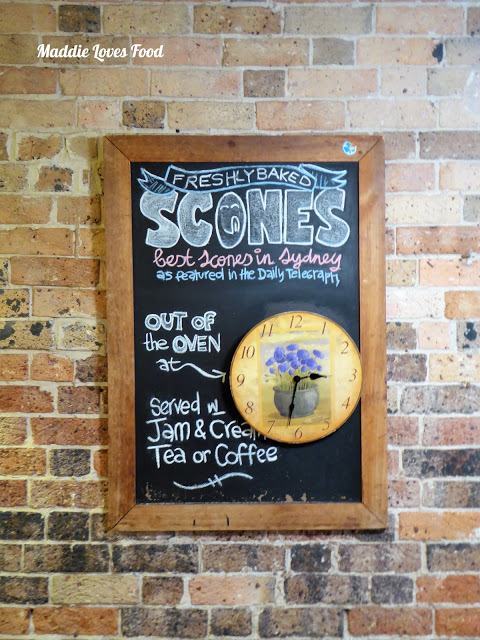 Maddie Loves Food
FRESHLY BAKED
SCONES
best scones in Sydney
as featured in the Daily Telegraph
OUT OF
the OVEN
at
12
1
2
3
4
5
6
7
8
9
10
11
Served w/
Jam & Cream
Tea or Coffee